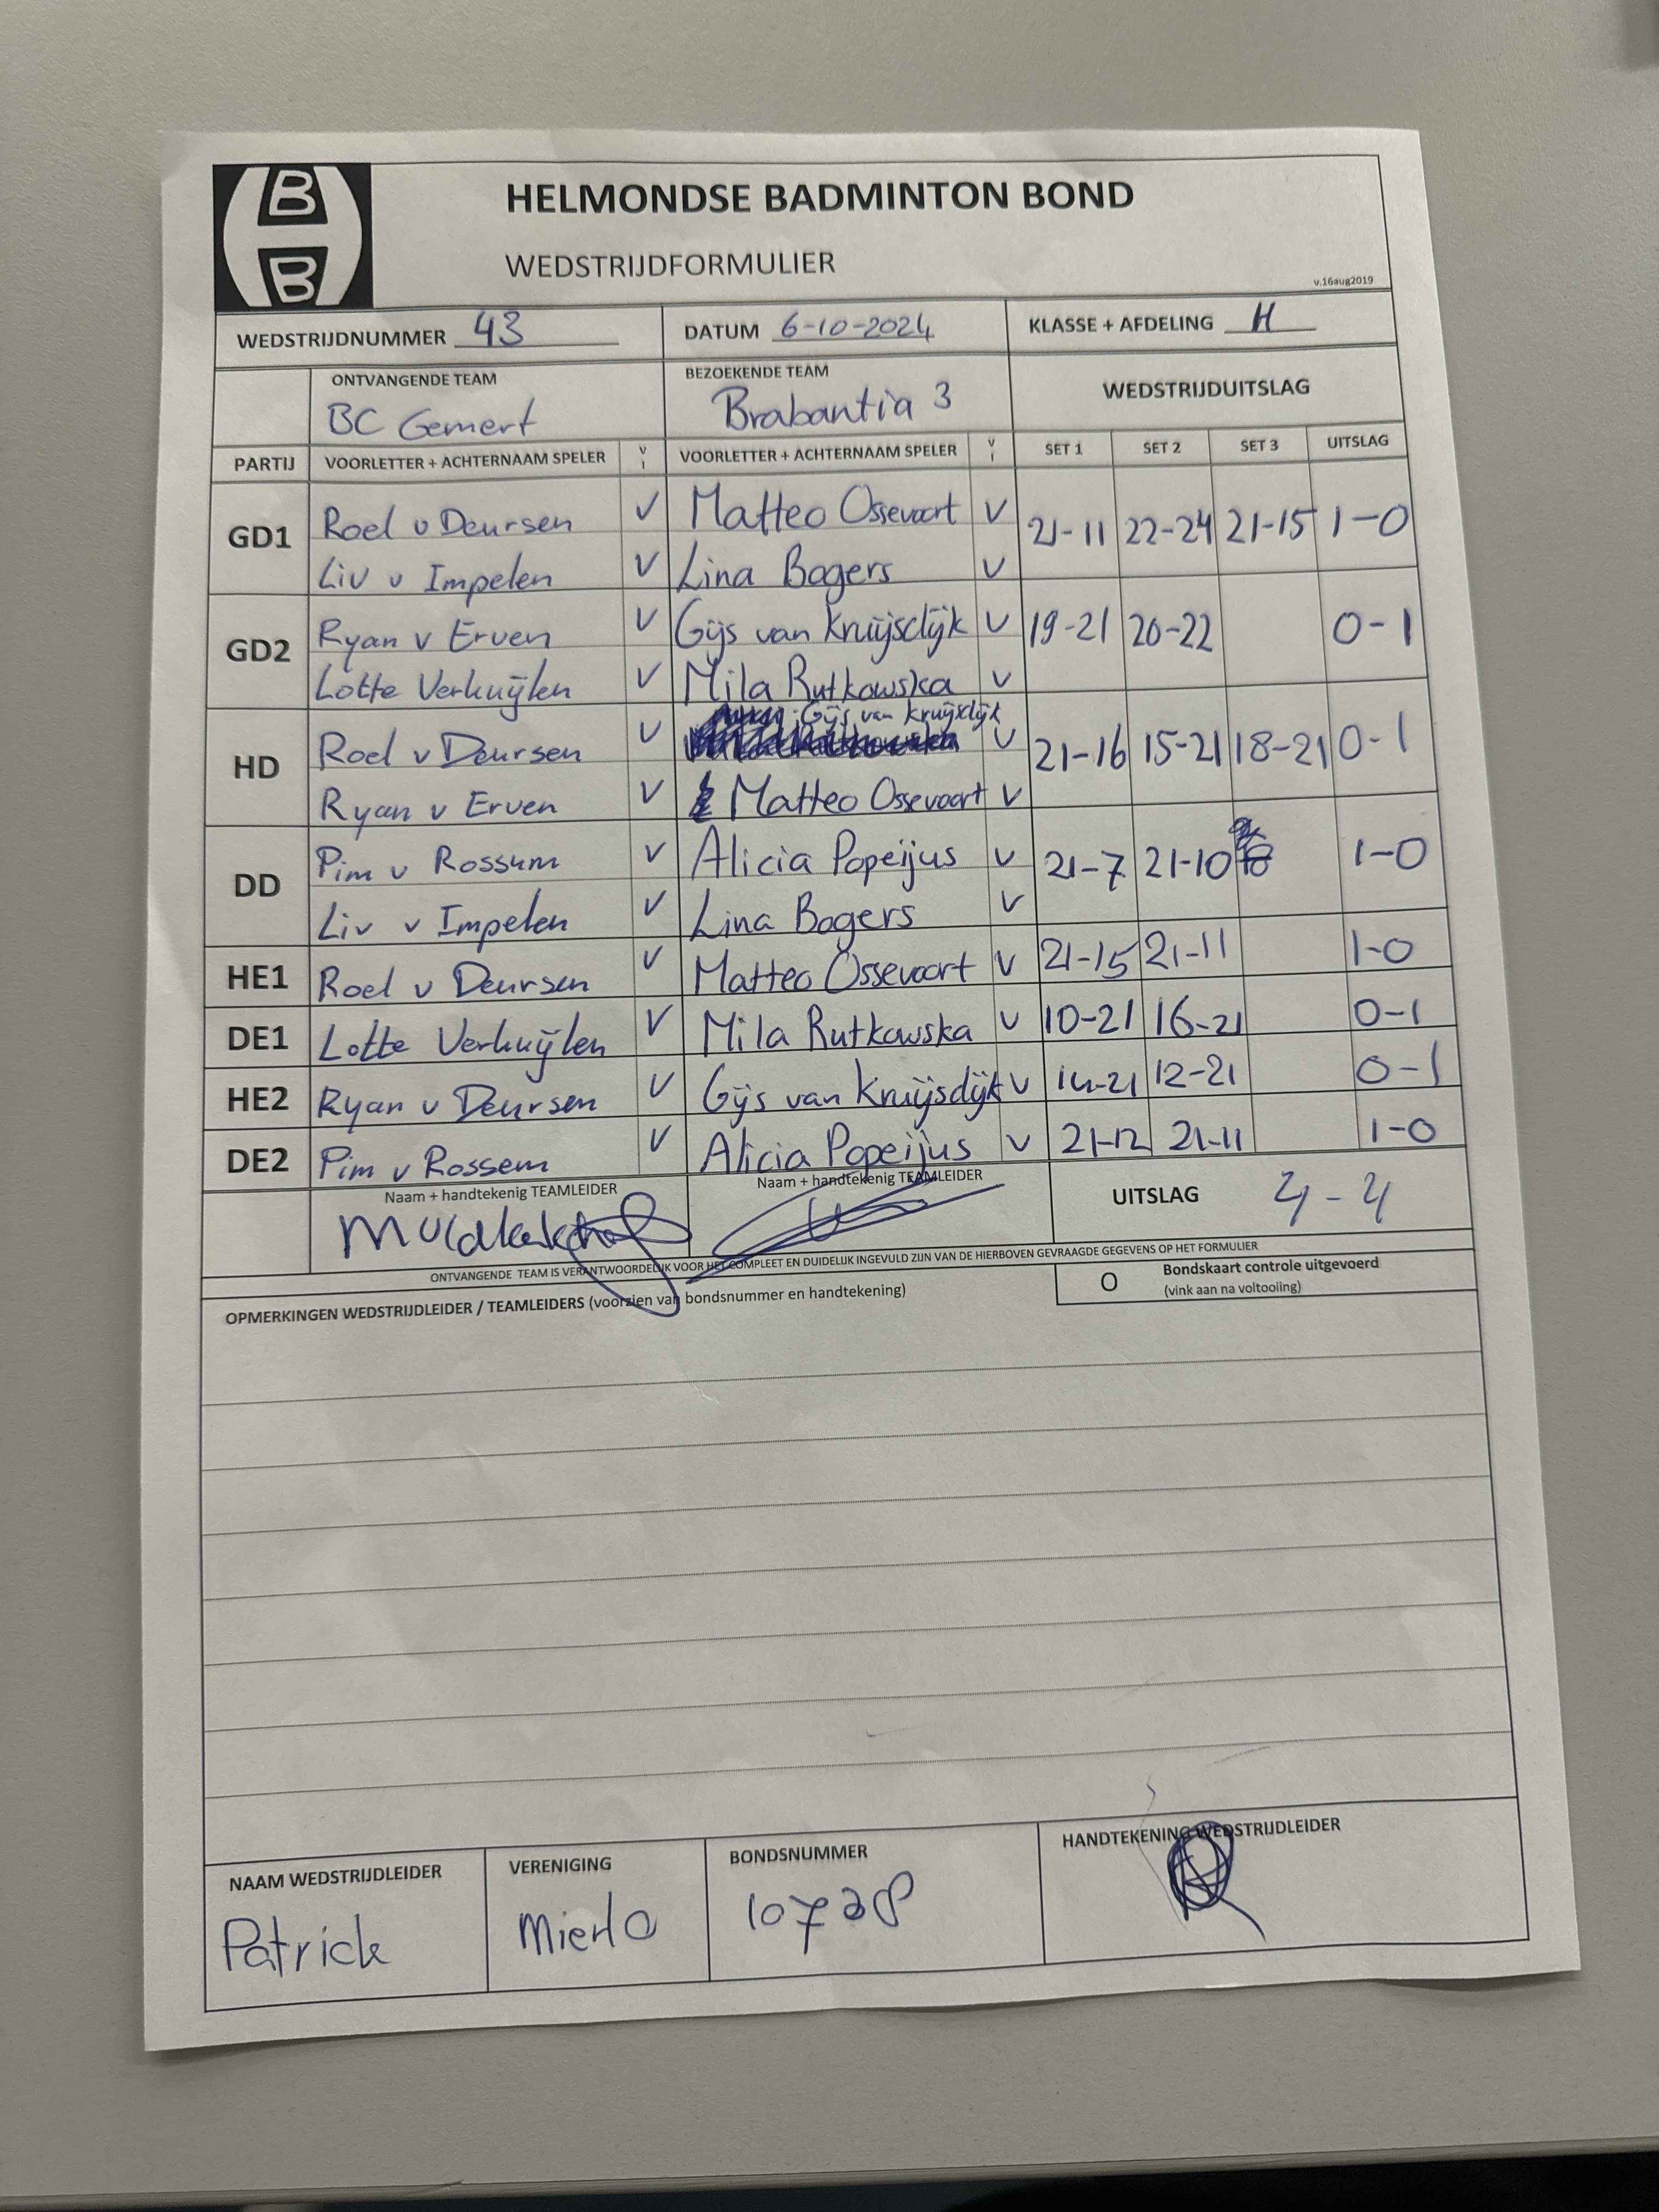 B
B
HELMONDSE BADMINTON BOND
WEDSTRIJDFORMULIER
v.16aug2019
WEDSTRIJDNUMMER 43 DATUM 6-10-2024 KLASSE + AFDELING H
ONTVANGENDE TEAM BEZOEKENDE TEAM WEDSTRIJDUITSLAG
BC Gemert Brabantia 3
PARTIJ VOORLETTER + ACHTERNAAM SPELER V I VOORLETTER + ACHTERNAAM SPELER V I SET 1 SET 2 SET 3 UITSLAG
GD1 Roel v Deursen V Matteo Ossevoort V 21-11 22-24 21-15 1-0
Liv v Impelen V Lina Bogers V
GD2 Ryan v Erven V Gijs van Kruijsdijk V 19-21 20-22 0-1
Lotte Verkuijlen V Mila Rutkowska V
HD Roel v Deursen V Gijs van Kruijsdijk V 21-16 15-21 18-21 0-1
Ryan v Erven V Matteo Ossevoort V
DD Pim v Rossum V Alicia Popeijus V 21-7 21-10 1-0
Liv v Impelen V Lina Bogers V
HE1 Roel v Deursen V Matteo Ossevoort V 21-15 21-11 1-0
DE1 Lotte Verkuijlen V Mila Rutkowska V 10-21 16-21 0-1
HE2 Ryan v Deursen V Gijs van Kruijsdijk V 14-21 12-21 0-1
DE2 Pim v Rossem V Alicia Popeijus V 21-12 21-11 1-0
Naam + handtekenig TEAMLEIDER Naam + handtekenig TEAMLEIDER UITSLAG 4-4
ONTVANGENDE TEAM IS VERANTWOORDELIJK VOOR HET COMPLEET EN DUIDELIJK INGEVULD ZIJN VAN DE HIERBOVEN GEVRAAGDE GEGEVENS OP HET FORMULIER
OPMERKINGEN WEDSTRIJDLEIDER / TEAMLEIDERS (voorzien van bondsnummer en handtekening)
O Bondskaart controle uitgevoerd
(vink aan na voltooiing)
NAAM WEDSTRIJDLEIDER VERENIGING BONDSNUMMER HANDTEKENING WEDSTRIJDLEIDER
Patrick Mierlo